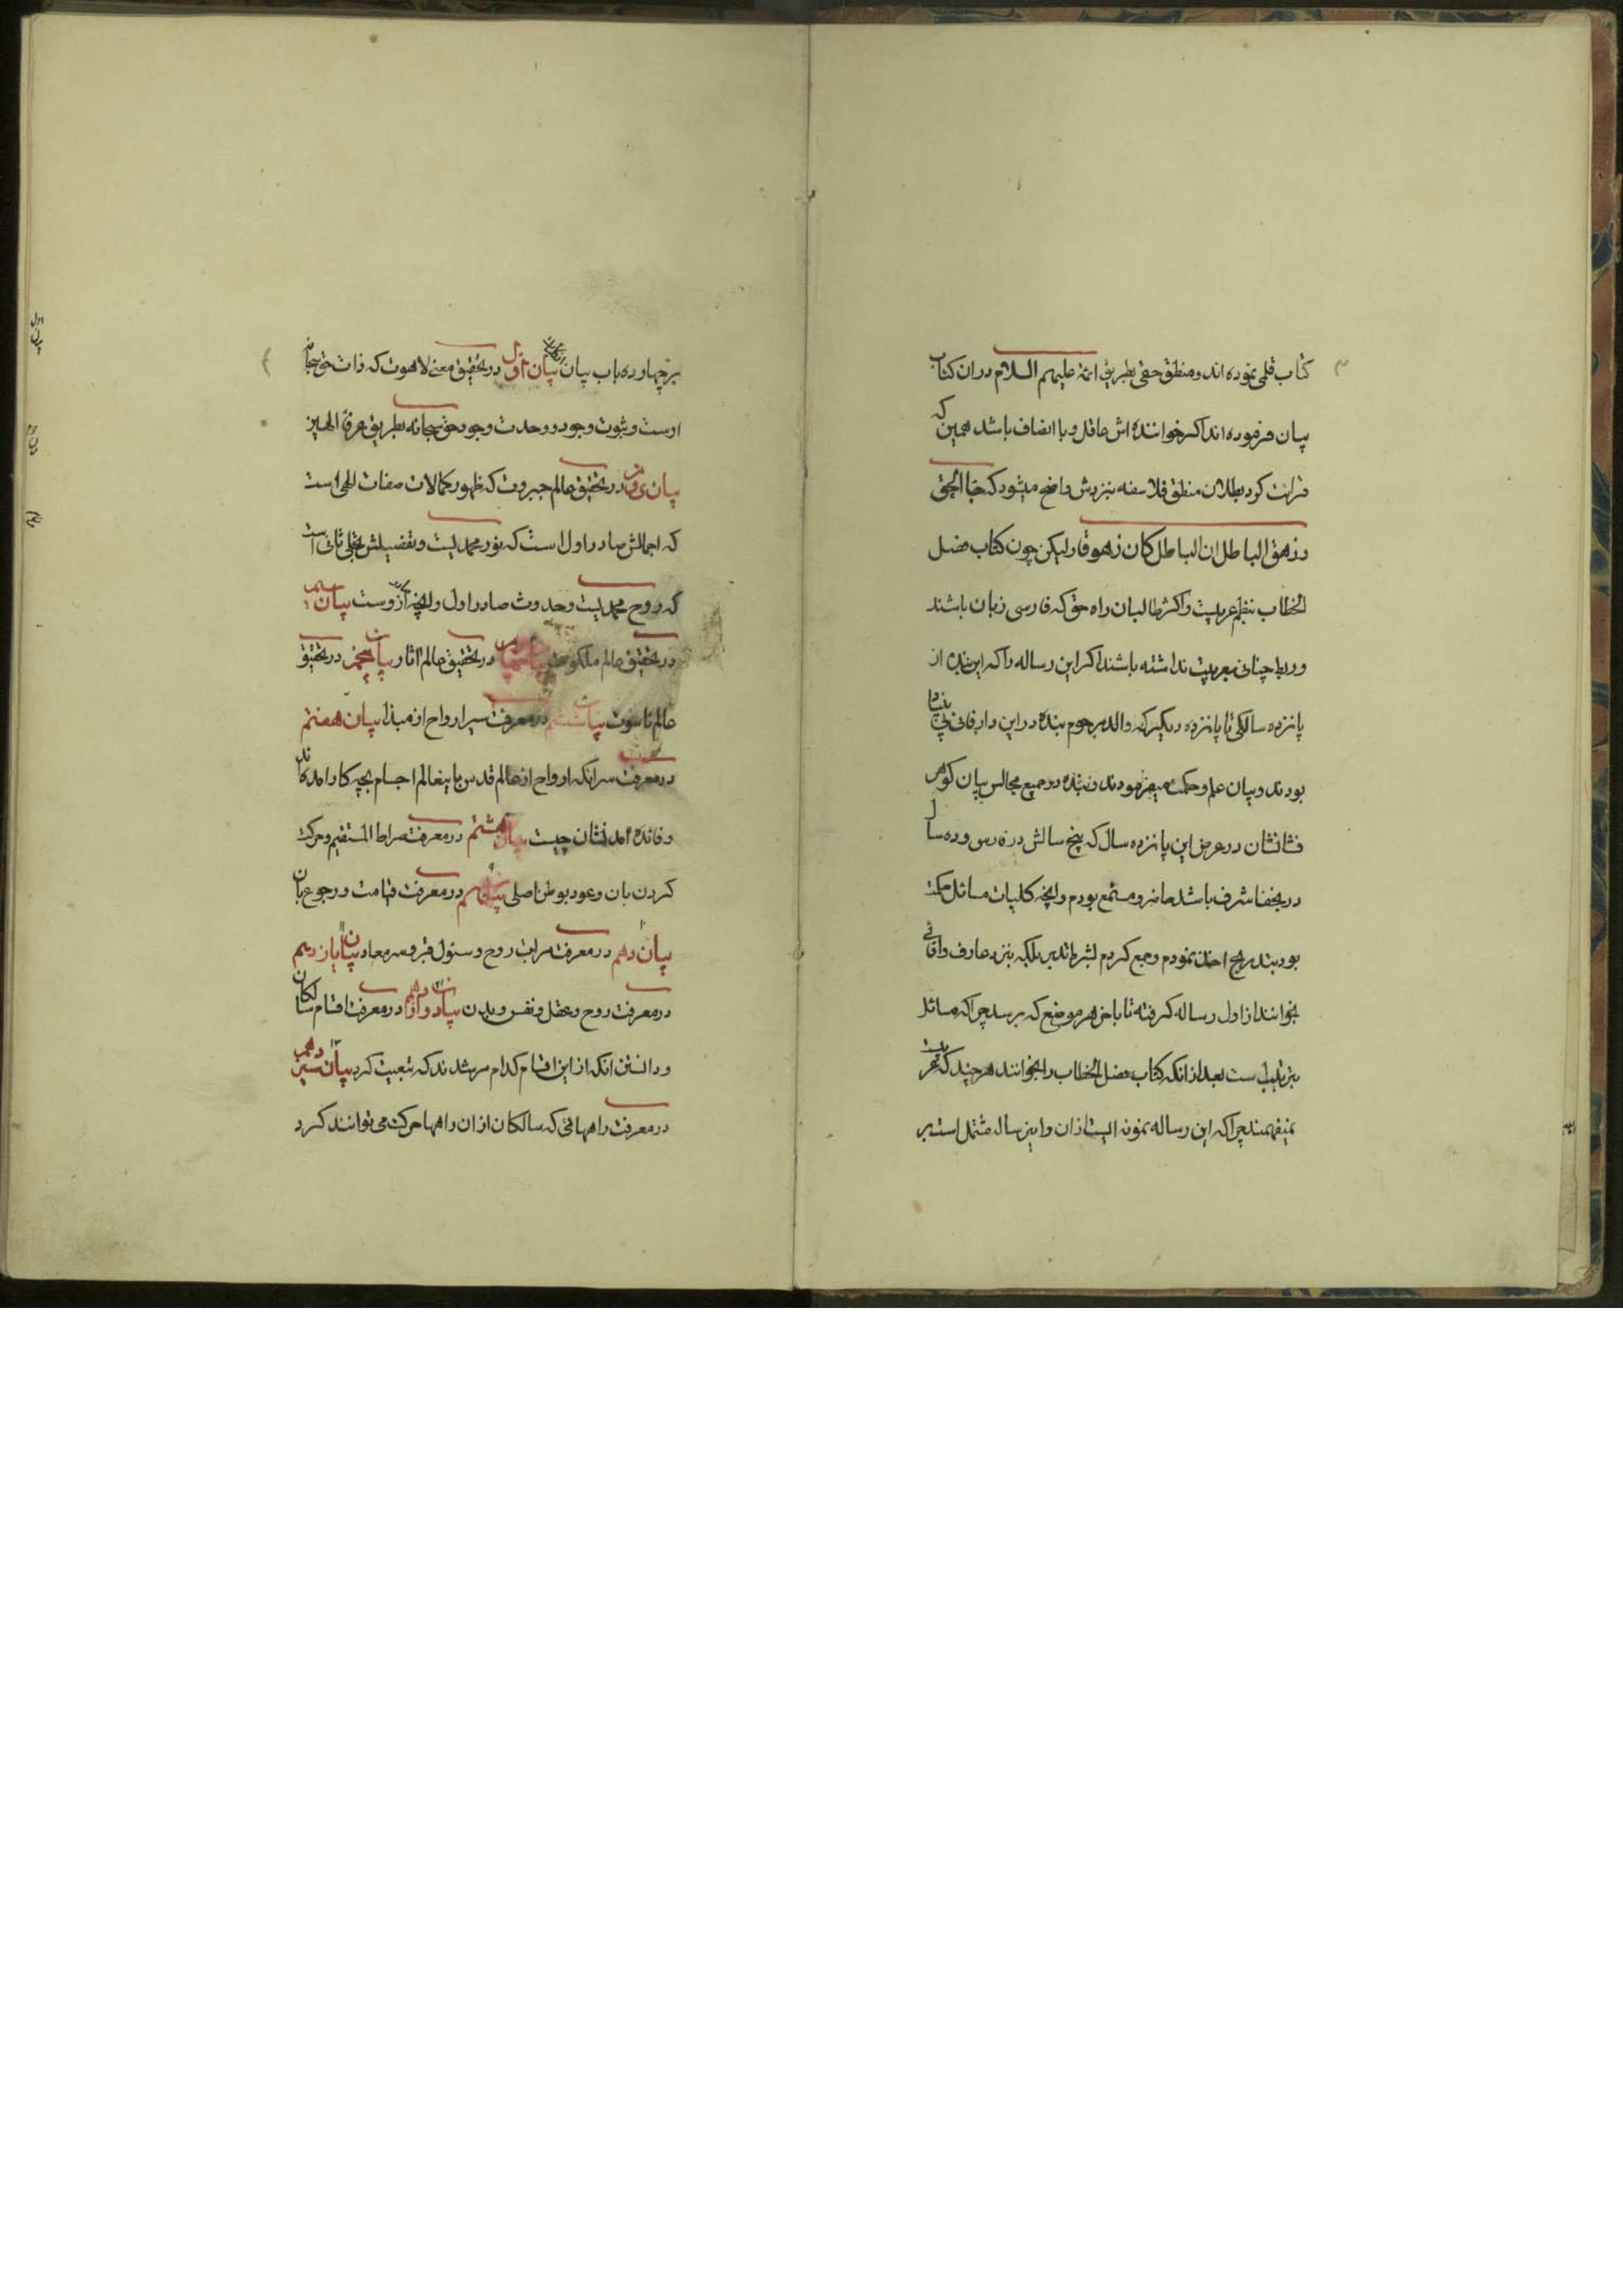 کتاب قلمی نموده اند و منطق حقی بطریق ائمهٔ علیهم السلام در ان کتاب
بیان فرموده اند اکر خواننده اش عاقل و با انصاف باشد همین که
قرائت کرد بطلان منطق فلاسفه نیز دش واضح میشود که جاء الحق
و زهق الباطل ان الباطل کان زهوقا ولیکن چون کتاب فصل
الخطاب بنظم عربیست و اکثر طالبان راه حق که فارسی زبان باشند
و ربط چنانی بعربیت نداشته باشند اکر این رساله را که این بنده از
پانزده سالکی تا پانزده دیکر که والد مرحوم بنده در این دار فانی
بودند و بیان علم و حکمت میفرمودند و بنده در جمیع مجالس بیان کوهر
فشانشان در عرض این پانزده سال که پنج سالش در فارس و ده سال
در نجف اشرف باشد حاضر و مستمع بودم و انچه کلیات مسائل حکمت
بود بتدریج اخذ نمودم و جمع کردم بشرط تدبر بلکه نیز د عارف واقفی
بخوانند از اول رساله کرفته تا باخر هر موضع که برسد چرا که مسائل
بترتیب است بعد از انکه کتاب فصل الخطاب را بخوانند هر چند که عربیست
میفهمند چرا که این رساله نمونه ایست از ان و این رساله مشتمل است بر
بر چهارده باب بیان بیان اول در تحقیق معنی لاهوت که ذات حق سبحانه
اوست و ثبوت وجود و وحدت وجود حق سبحانه بطریق عرفاء الهیین
بیان دوم در تحقیق عالم جبروت که ظهور کمالات صفات الهی است
که اجمالش صادر اول است که نور محمدیست و تفصیلش تجلی ثانی است
که روح محمدیست و حدوث صادر اول و انچه از وست بیان سیم
در تحقیق عالم ملکوت بیان چهارم در تحقیق عالم اثار بیان پنجم در تحقیق
عالم ناسوت بیان ششم در معرفت سیر ارواح از مبدا بیان هفتم
در معرفت سر انکه ارواح از عالم قدس باینعالم اجسام بچه کار امده اند
و فائده امدنشان چیست بیان هشتم در معرفت صراط المستقیم و حرکت
کردن بان و عود بوطن اصلی بیان نهم در معرفت قیامت و رجوع بان
بیان دهم در معرفت مراتب روح و سئول قبر و سر معاد بیان یازدهم
در معرفت روح و عقل و نفس و بدن بیان دوازدهم در معرفت اقسام سالکان
و دانستن انکه از این اقسام کدام مرشدند که تبعیت کرد بیان سیزدهم
در معرفت راههائی که سالکان از ان راهها حرکت می توانند کرد